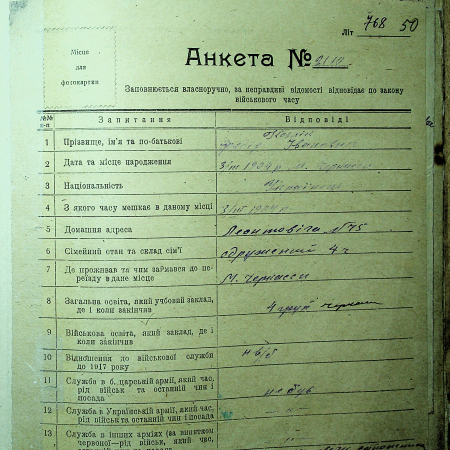 Літ 768 50
Місце
для
фотокартки
Анкета №
Заповнюється власноручно, за неправдиві відомості відповідає по закону
військового часу
№№
п-п
Запитання
Відповіді
1 Прізвище, ім'я та по-батькові
Іванович
2 Дата та місце народження
3 Національність
Українець
4 З якого часу мешкає в даному місці
5 Домашня адреса
Леонтовіча №75
6 Сімейний стан та склад сім'ї
одружений 4 ч
7 Де проживав та чим займався до пе-
реїзду в дане місце
М. Черкасси
8 Загальна освіта, який учбовий заклад,
де і коли закінчив
4 груп
9 Військова освіта, який заклад, де і
коли закінчив
10 Відношення до військової служби
до 1917 року
н в/б
11 Служба в б. царській армії, який час,
рід військ та останній чин і
посада
не був
12 Служба в Українській армії, який час,
рід військ та останній чин і посада
13 Служба в інших арміях (за винятком
червоної—рід військ, який час,